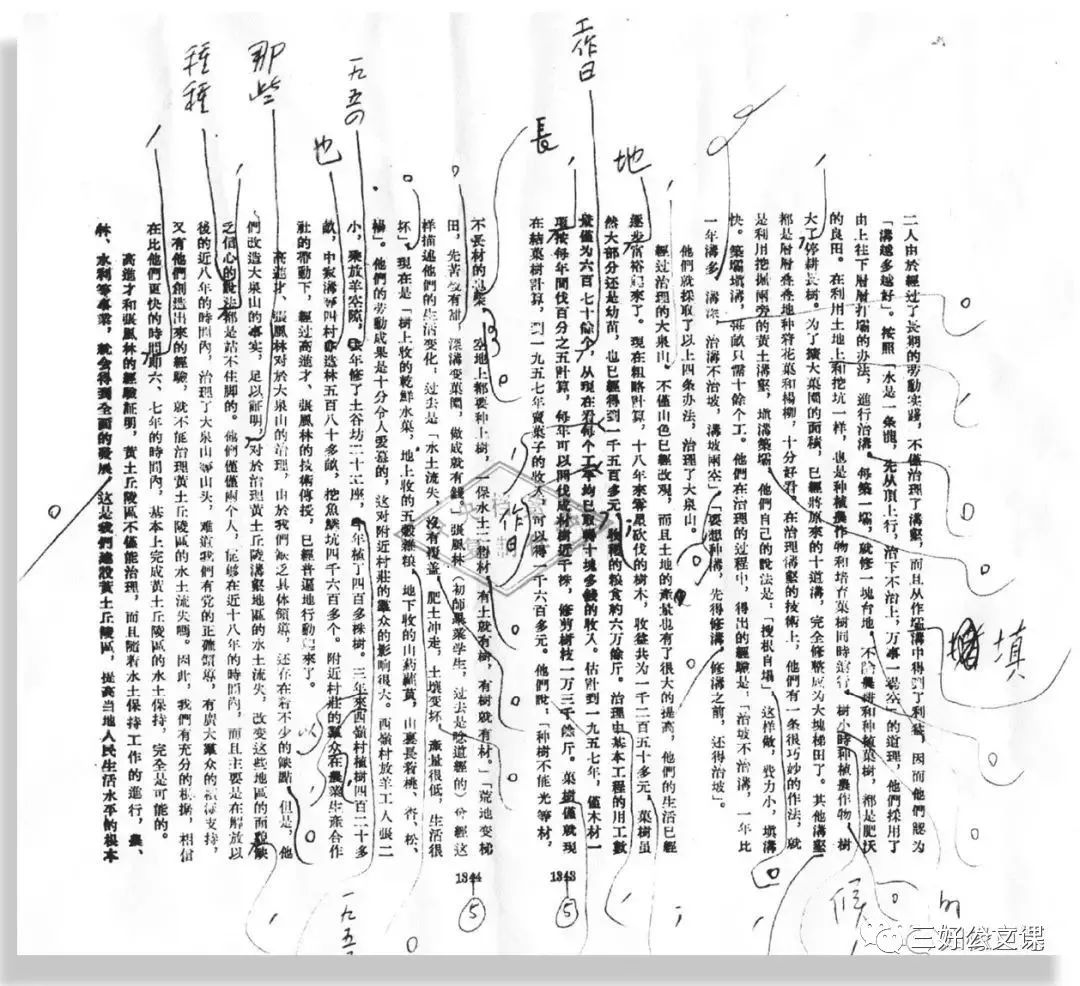 二人由於經过了長期的劳動实踐，不僅治理了溝壑，而且从作壩溝中得到了利益，因而他們認为
「溝越多越好」。按照「水是一条龍，先从頂上行，治下不治上，万事一場空」的道理，他們採用了
由上往下層層打壩的办法，進行治溝。每築一壩，就修一塊台地。不論農耕和种植菓树，都是肥沃
的良田。在利用土地上和挖坑一样，也是种植農作物和培育菓树同時進行。树小時种植農作物，树
大了停耕長树。为了擴大菓園的面積，已經將原來的十道溝，完全修整成为大塊梯田了。其他溝壑
都是層層叠叠地种着花菓和楊柳，十分好看。在治理溝壑的技術上，他們有一条很巧妙的作法，就
是利用挖掘兩旁的黄土溝壑，填溝築壩。他們自己的說法是：「搜根自塌」。这样做，費力小，填溝
快。築壩填溝，每畝只需十餘个工。他們在治理的过程中，得出的經驗是：「治坡不治溝，一年比
一年溝多，溝深，治溝不治坡，溝坡兩空」「要想种溝，先得修溝，修溝之前，还得治坡」。
他們就採取了以上四条办法，治理了大泉山。
經过治理的大泉山。不僅山色已經改观，而且土地的產量也有了很大的提高，他們的生活已經
逐步富裕起來了。現在粗略計算，十八年來零星砍伐的樹木，收益共为一千二百五十多元，菓树虽
然大部分还是幼苗，也已經得到一千五百多元，收穫的粮食約六万餘斤。治理中基本工程的用工數
量僅为六百七十餘个，从現在看每个工平均已取得十塊多錢的收入。估計到一九五七年，僅木材一
項按每年間伐百分之五計算，每年可以間伐成材树近千株，修剪树枝一万三千餘斤。菓树僅就現
在結菓树計算，到一九五七年賣菓子的收入，可以得一千六百多元。他們說，「种树不能光等材，
1343
⑤
不長材的是菜，空地上都要种上树，一保水土二粉材，有土就有树，有树就有材。二荒地变梯
田，先苦後有甜，深溝变菓園，做成就有錢。」張風林（初師畢業学生，过去是唸道經的）曾經这
样描述他們的生活变化，过去是「水土流失，沒有覆盖，肥土冲走，土壤变坏，產量很低，生活很
坏」。現在是「树上收的乾鮮水菓，地上收的五穀雜粮，地下收的山药蘿蔔，山裏長着桃、杏、松、
楊」。他們的劳動成果是十分令人爱慕的，这对附近村莊的羣众的影响很大。西嶺村放羊工人張二
小，乘放羊空隙，三年修了土谷坊二十二座，三年植了四百多株树。三年來四嶺村植树四百二十多
畝，中寂溝等四村亦造林五百八十多畝，挖魚鱗坑四千六百多个。附近村莊的羣众在農業生產合作
社的帶動下，經过高進才、張風林的技術傳授，已經普遍地行動起來了。
高進才，張風林对於大泉山的治理，由於我們缺乏具体領導，还存在着不少的缺點，但是，他
們改造大泉山的事实，足以証明，对於治理黄土丘陵溝壑地區的水土流失，改变这些地區的面貌缺
乏信心的說法都是站不住脚的。他們僅僅兩个人，能够在近十八年的時間內，而且主要是在解放以
後的近八年的時間內，治理了大泉山等山头，难道我們有党的正確領導，有廣大羣众的積極支持，
又有他們創造出來的經驗，就不能治理黄土丘陵區的水土流失嗎。因此，我們有充分的根据，相信
在比他們更快的時間即六、七年的時間內，基本上完成黄土丘陵區的水土保持，完全是可能的。
高進才和張風林的經驗証明，黄土丘陵區不僅能治理，而且随着水土保持工作的進行，農、
林、水利等事業，就会得到全面的發展，这是我們建設黄土丘陵區，提高当地人民生活水平的根本
1344
⑤
填
候
的
地
工作日
長
作日
一九五〇
也
那些
種種
一九五
三好公文课